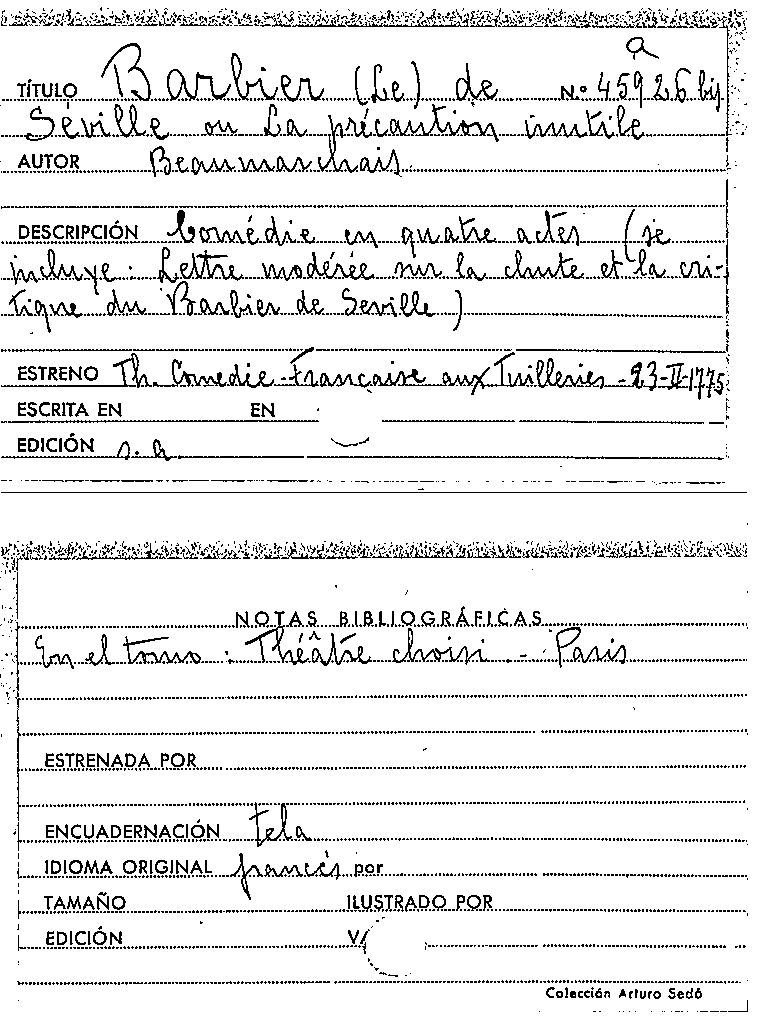 a
TÍTULO Barbier (Le) de Nº 45926 bis
Séville ou La précaution inutile
AUTOR Beaumarchais
DESCRIPCIÓN Comédie en quatre actes (se
incluye: Lettre modérée sur la chute et la cri-
tique du Barbier de Seville)
ESTRENO Th. Comedie-Française aux Tuilleries - 23-II-1775
ESCRITA EN EN
EDICIÓN s. a.
NOTAS BIBLIOGRÁFICAS
En el tomo: Théâtre choisi. - Paris
ESTRENADA POR
ENCUADERNACIÓN tela
IDIOMA ORIGINAL francés por
TAMAÑO ILUSTRADO POR
EDICIÓN V/
Colección Arturo Sedó